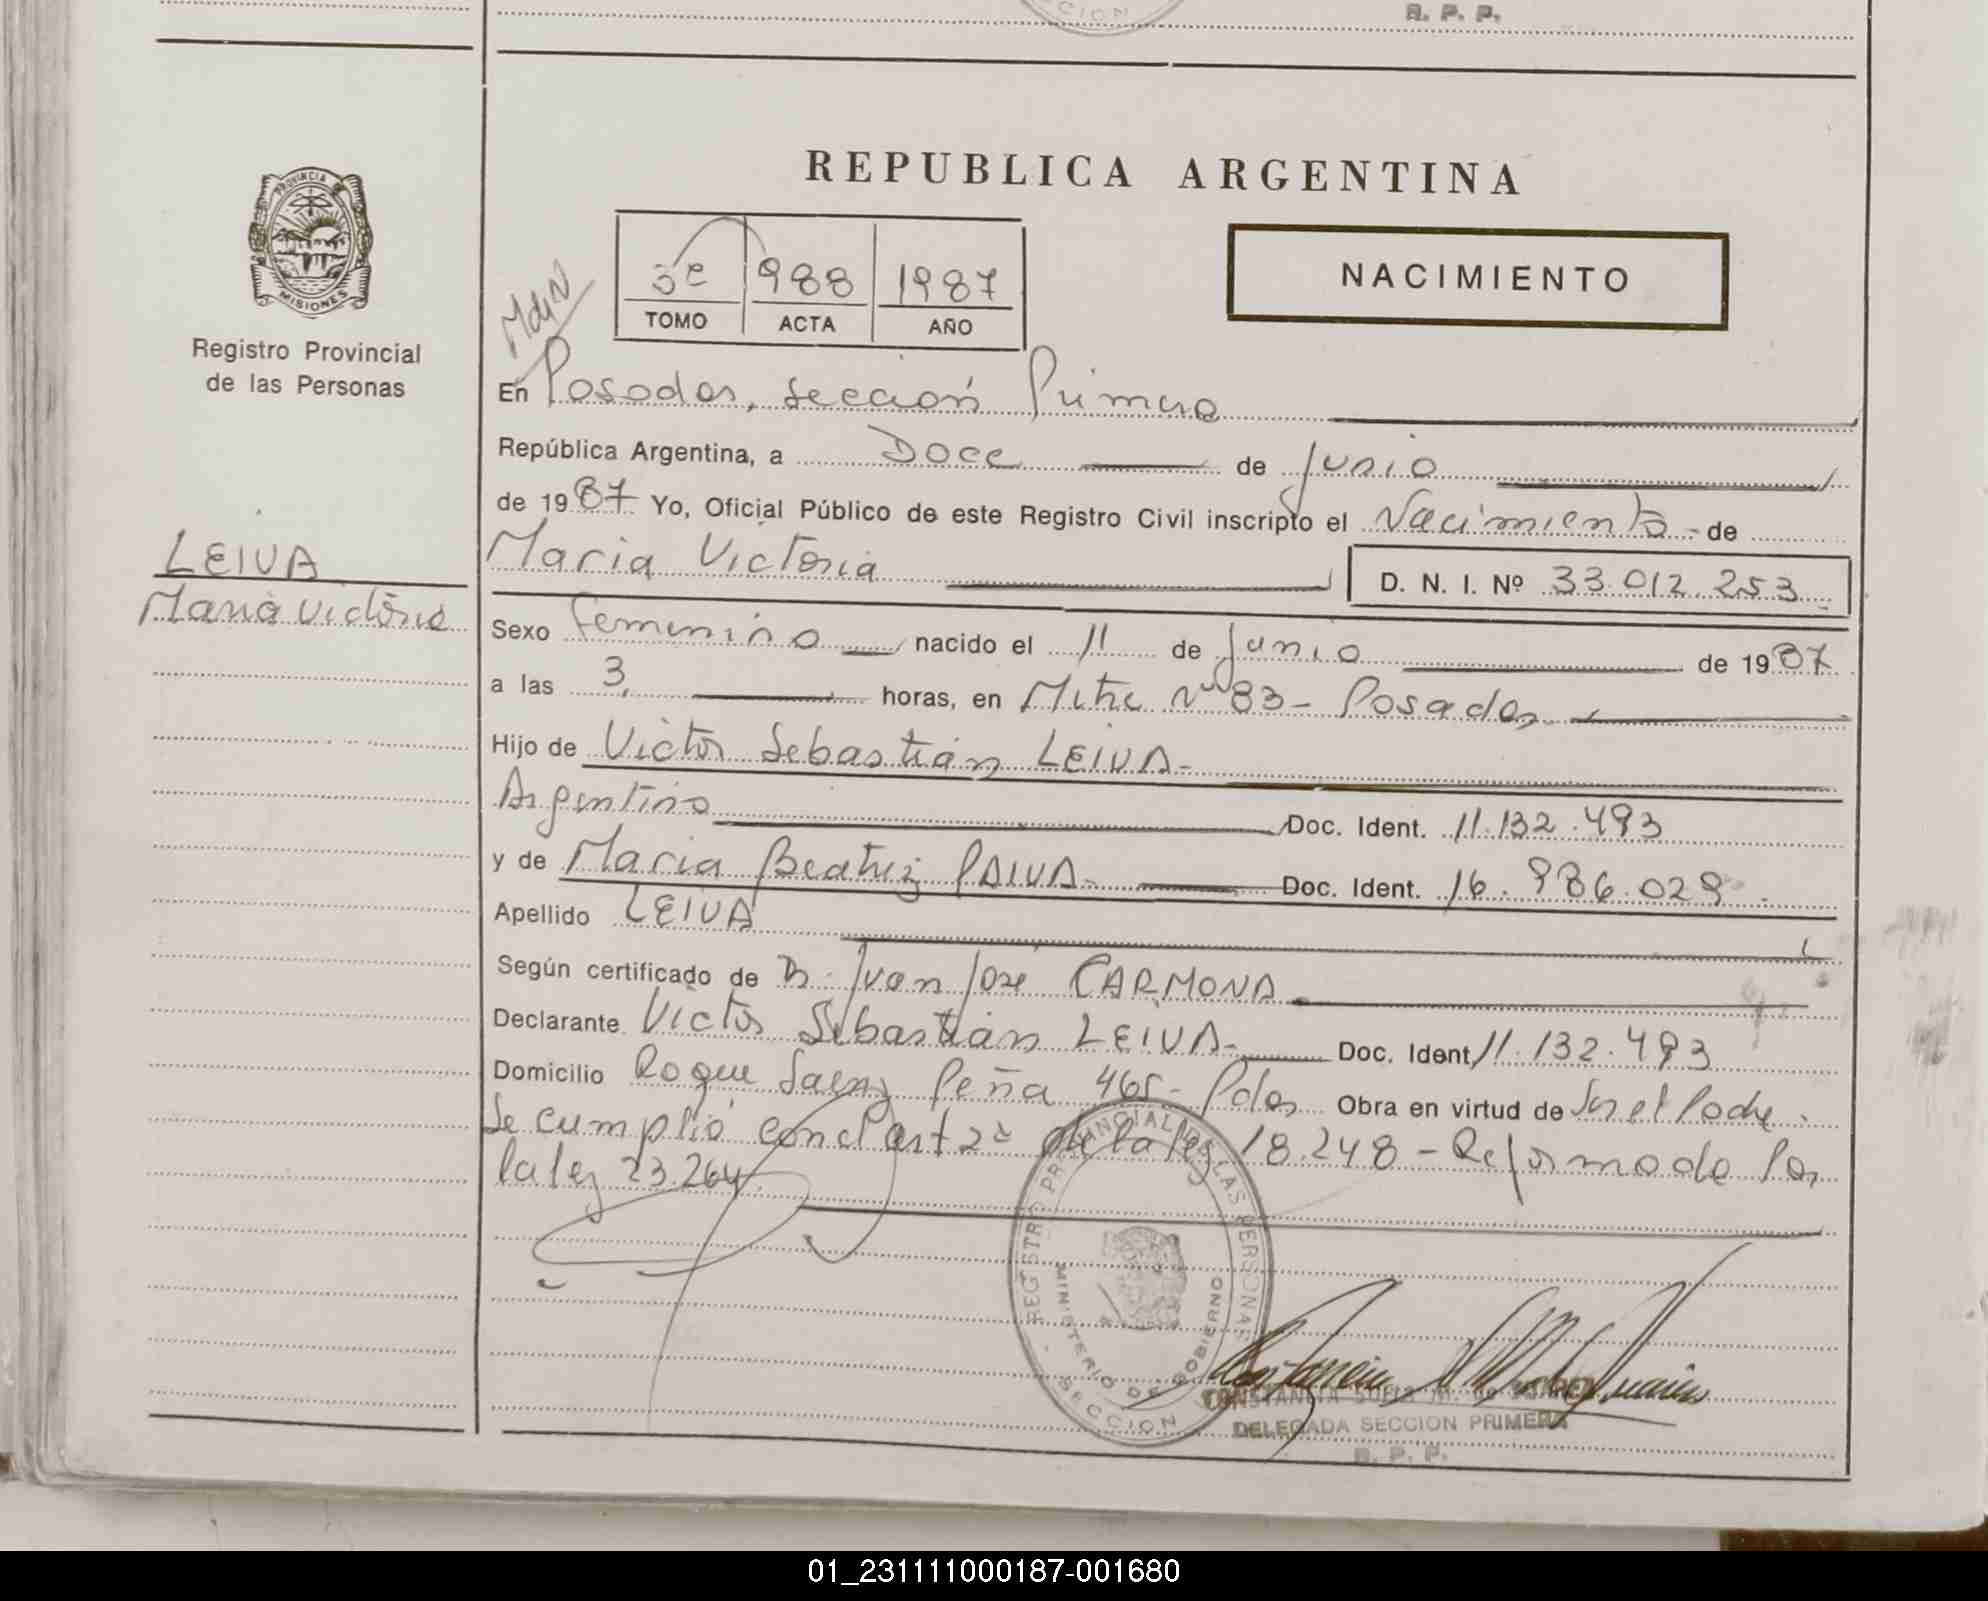 CCION
R. P. P.
REPUBLICA ARGENTINA
PROVINCIA DE
MISIONES
3e 988 1987
TOMO ACTA AÑO
NACIMIENTO
Registro Provincial
de las Personas
En Posadas, Sección Primera
República Argentina, a Doce de Junio
de 1987 Yo, Oficial Público de este Registro Civil inscripto el Nacimiento - de
LEIVA
Maria Victoria D. N. I. Nº 33.012.253
Maria Victoria
Sexo femenino nacido el 11 de Junio de 1987
a las 3, horas, en Mitre Nº 83 - Posadas
Hijo de Victor Sebastián LEIVA -
Argentino Doc. Ident. 11.132.493
y de Maria Beatriz PAIVA - Doc. Ident. 16.986.029
Apellido LEIVA
Según certificado de Dr. Juan José CARMONA
Declarante Victor Sebastián LEIVA - Doc. Ident 11.132.493
Domicilio Roque Saenz Peña 465 - Pdas Obra en virtud de Ser el Padre.
Se cumplió con el art 2º de la ley 18.248 - Reformada por
la ley 23.264.
REGISTRO PROVINCIAL DE LAS PERSONAS
MINISTERIO DE GOBIERNO
SECCION
CONSTANCIA
DELEGADA SECCION PRIMERA
R. P. P.
01_231111000187-001680